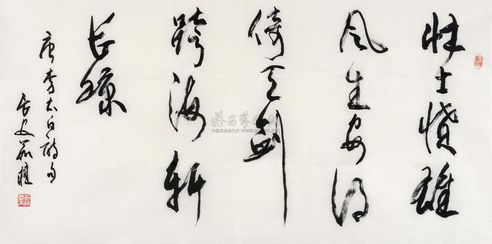 壮士愤雄
风生安得
倚天剑
跨海斩
长鲸
唐李太白诗句